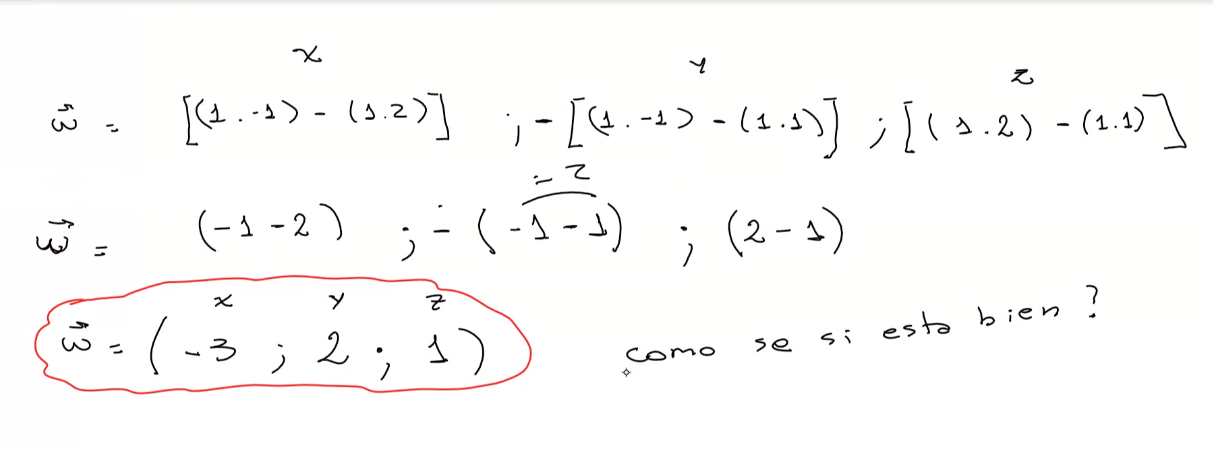 x y z
w⃗ = [(1.-1) - (1.2)] ; -[(1.-1) - (1.1)] ; [(1.2) - (1.1)]
= 2
w⃗ = (-1-2) ; -(-1-1) ; (2-1)
x y z
w⃗ = (-3 ; 2 ; 1) como se si esta bien ?